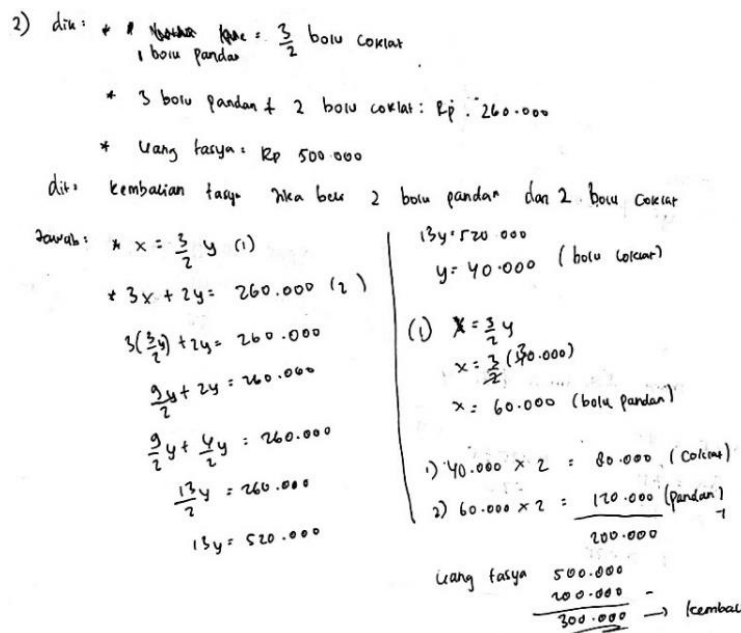 2) dik : * 1 bolu pandan = 3/2 bolu coklat
* 3 bolu pandan + 2 bolu coklat : Rp . 260.000
* Uang tasya : Rp 500.000
dit : kembalian tasya jika beli 2 bolu pandan dan 2 bolu coklat
Jawab : * x = 3/2 y (1)
* 3x + 2y = 260.000 (2)
3(3/2 y) + 2y = 260.000
9/2 y + 2y = 260.000
9/2 y + 4/2 y = 260.000
13/2 y = 260.000
13y = 520.000
13y = 520.000
y = 40.000 (bolu coklat)
(1) x = 3/2 y
x = 3/2 (40.000)
x = 60.000 (bolu pandan)
1) 40.000 x 2 = 80.000 (coklat)
2) 60.000 x 2 = 120.000 (pandan) +
200.000
Uang tasya 500.000
200.000 -
300.000 → kembali